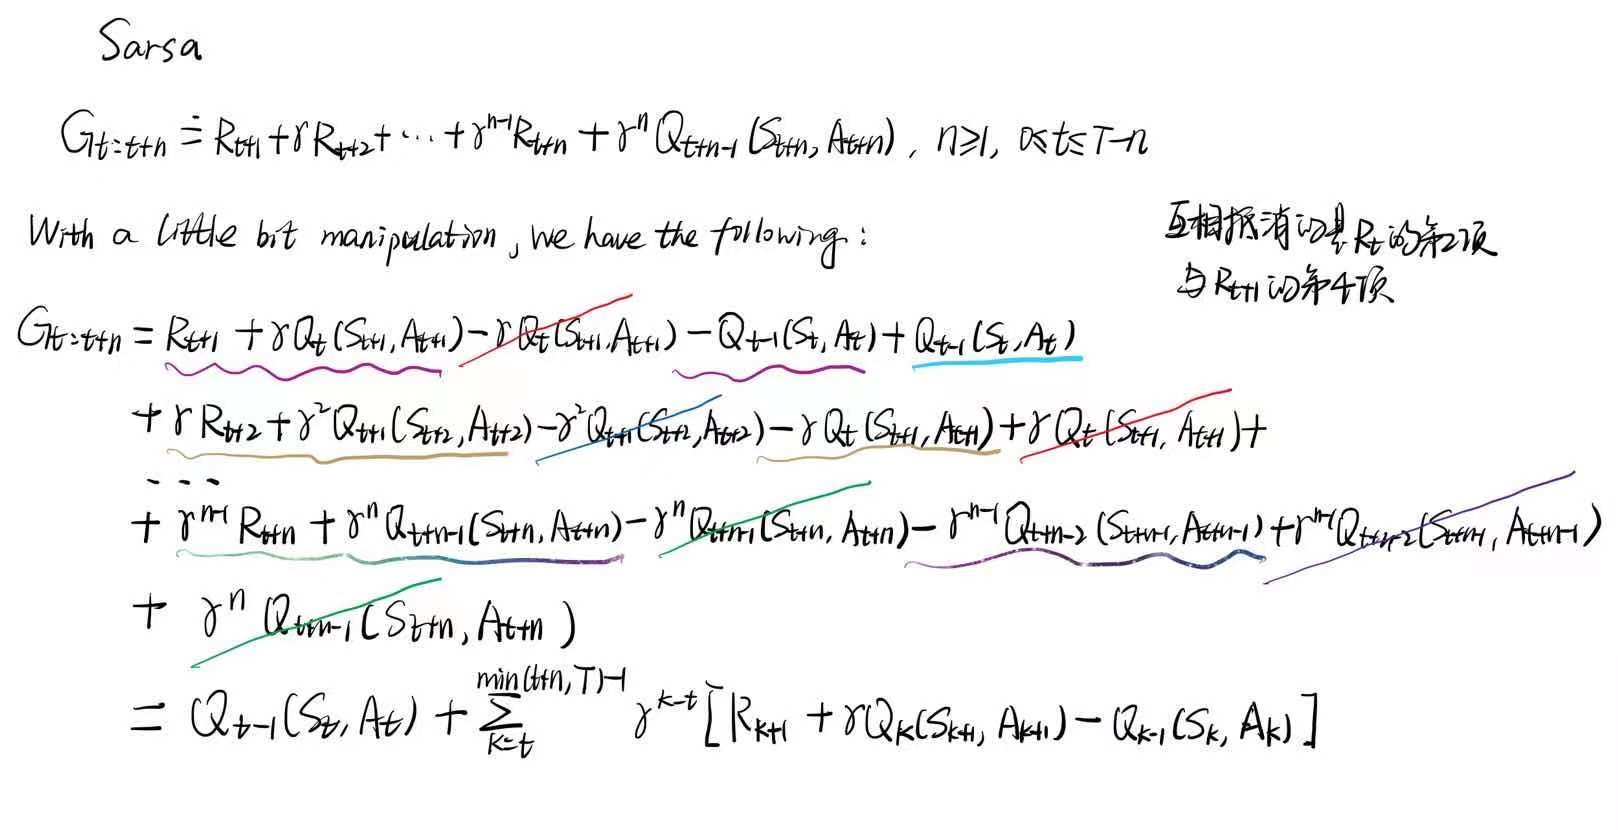 Sarsa
G_{t:t+n} ≐ R_{t+1} + γR_{t+2} + ⋯ + γ^{n-1}R_{t+n} + γ^n Q_{t+n-1}(S_{t+n}, A_{t+n}), n≥1, 0≤t≤T-n
With a little bit manipulation, we have the following:
互相抵消的是R_t的第2项
与R_{t+1}的第4项
G_{t:t+n} = R_{t+1} + γQ_t(S_{t+1}, A_{t+1}) - γQ_t(S_{t+1}, A_{t+1}) - Q_{t-1}(S_t, A_t) + Q_{t-1}(S_t, A_t)
+ γR_{t+2} + γ^2Q_{t+1}(S_{t+2}, A_{t+2}) - γ^2Q_{t+1}(S_{t+2}, A_{t+2}) - γQ_t(S_{t+1}, A_{t+1}) + γQ_t(S_{t+1}, A_{t+1}) +
⋯
+ γ^{n-1}R_{t+n} + γ^nQ_{t+n-1}(S_{t+n}, A_{t+n}) - γ^nQ_{t+n-1}(S_{t+n}, A_{t+n}) - γ^{n-1}Q_{t+n-2}(S_{t+n-1}, A_{t+n-1}) + γ^{n-1}Q_{t+n-2}(S_{t+n-1}, A_{t+n-1})
+ γ^n Q_{t+n-1}(S_{t+n}, A_{t+n})
= Q_{t-1}(S_t, A_t) + ∑_{k=t}^{min(t+n,T)-1} γ^{k-t}[R_{k+1} + γQ_k(S_{k+1}, A_{k+1}) - Q_{k-1}(S_k, A_k)]